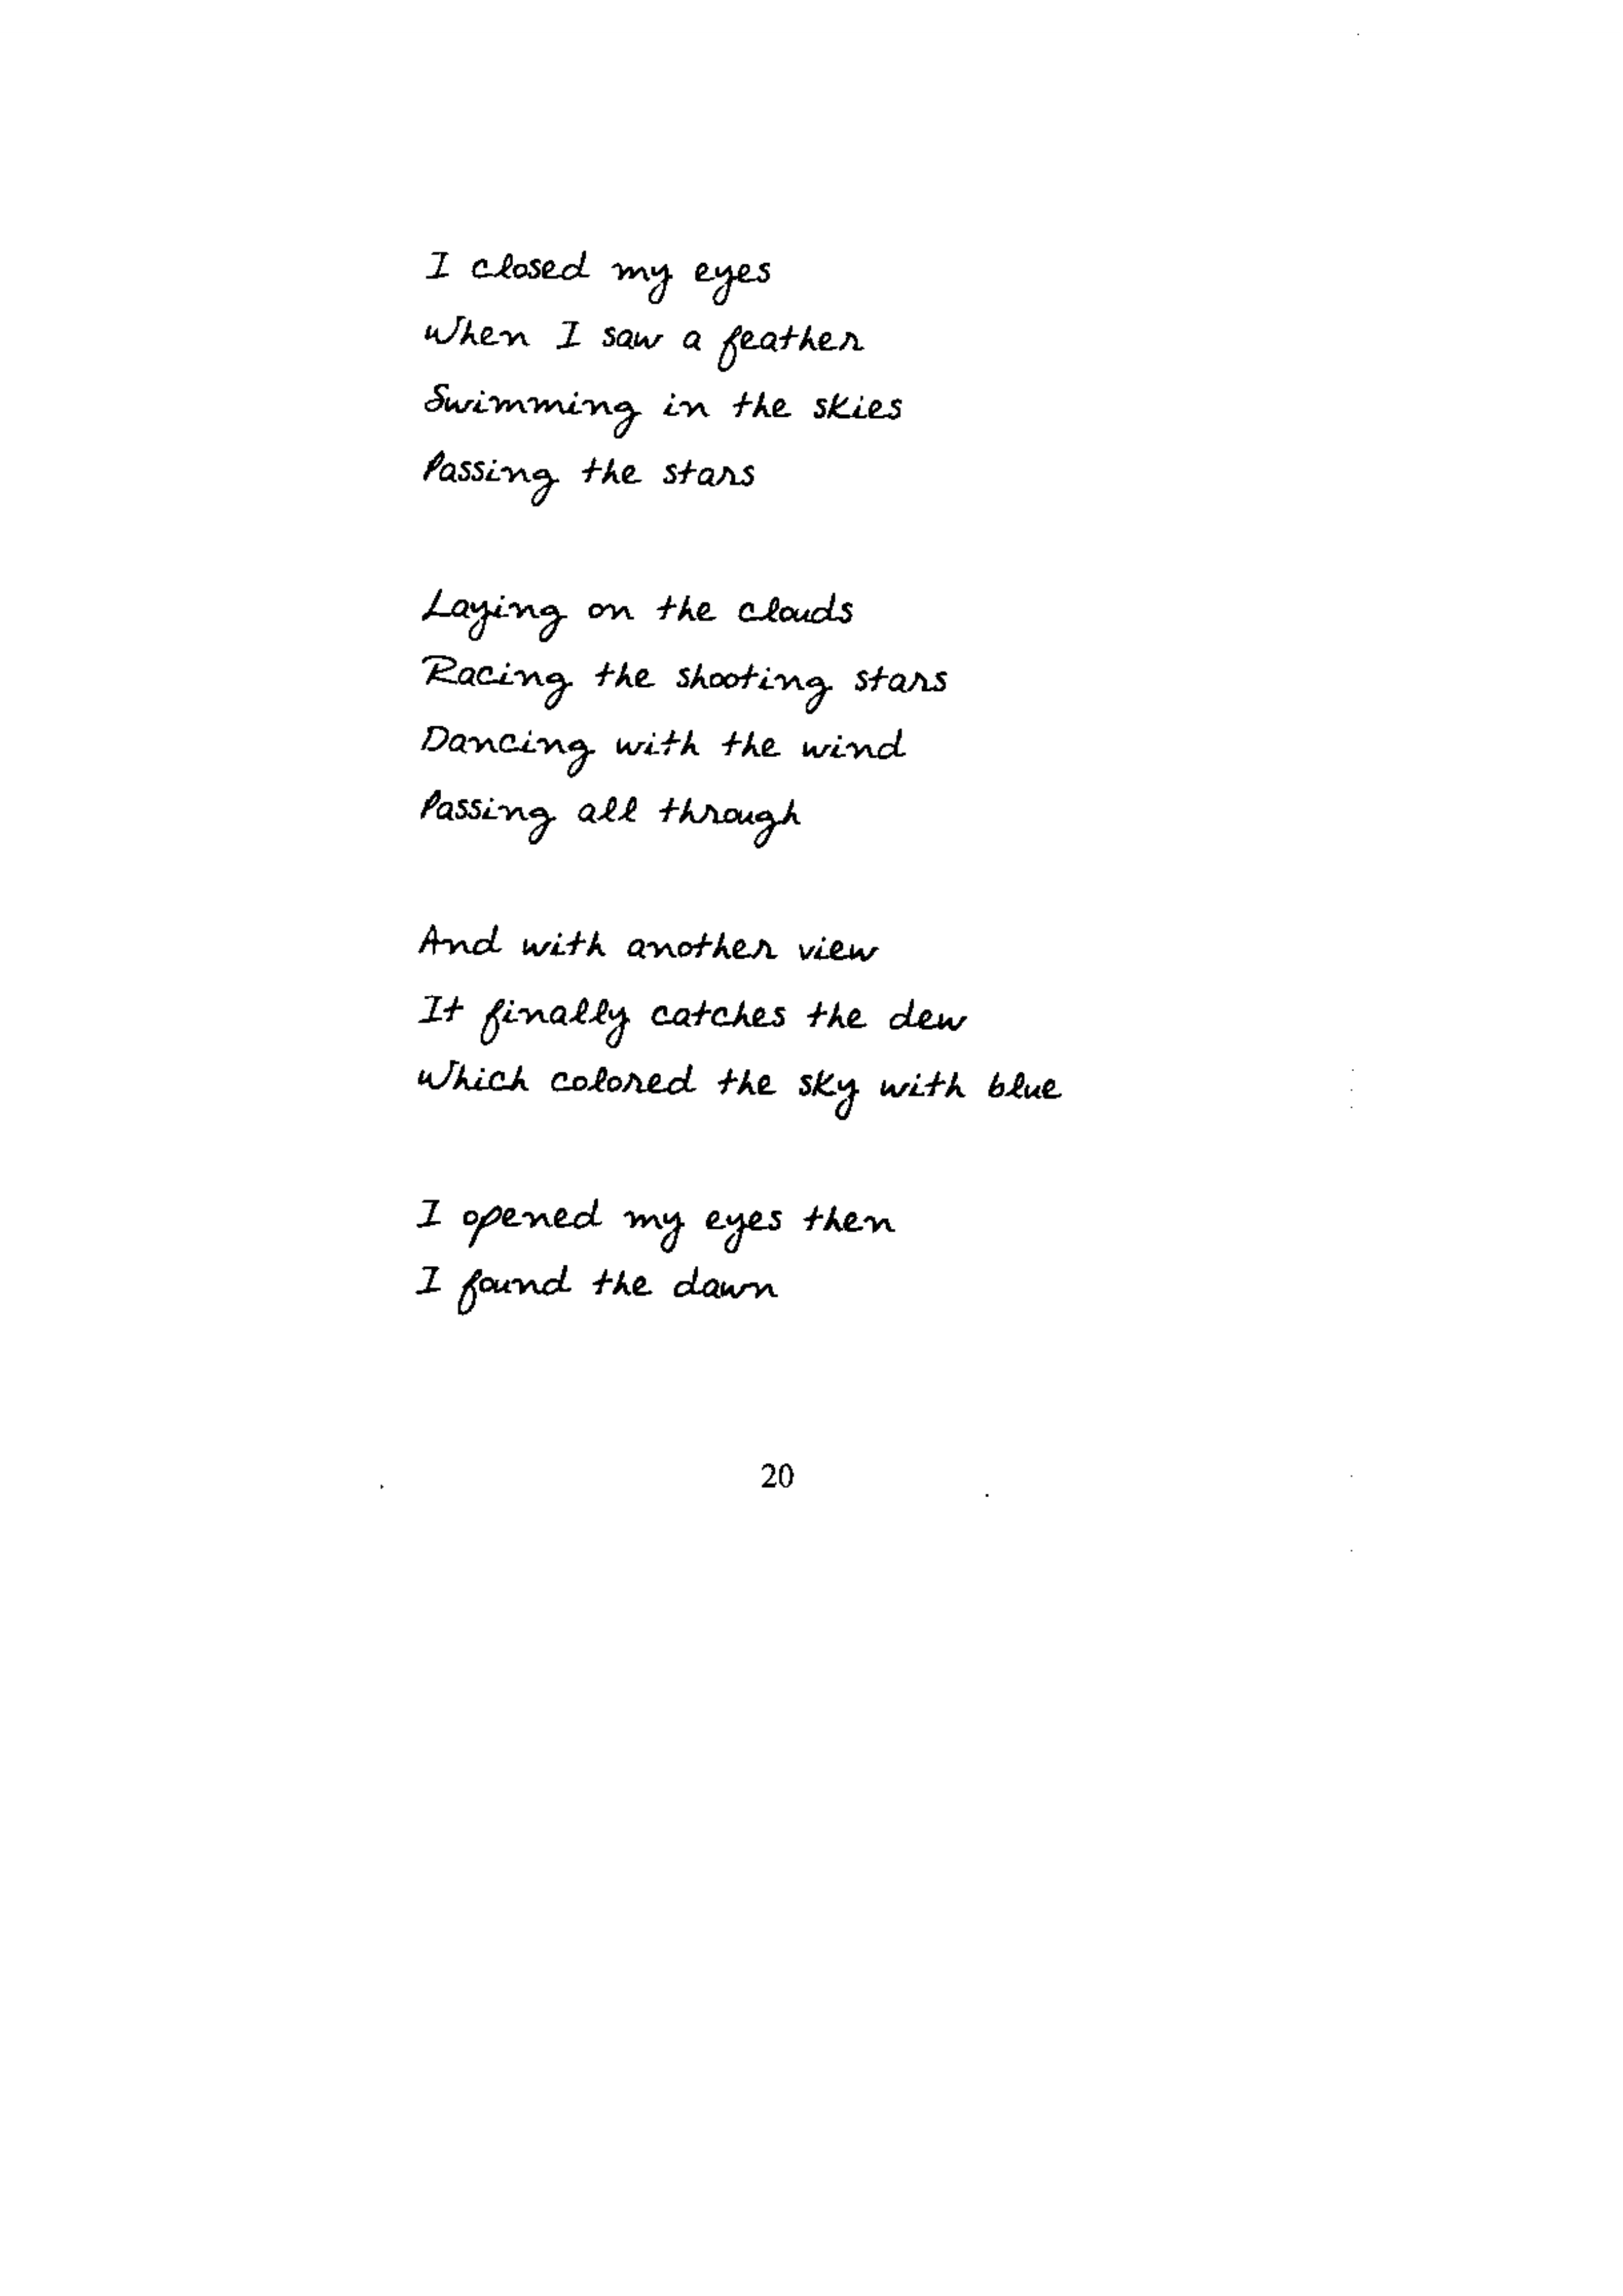 I closed my eyes
When I saw a feather
Swimming in the skies
Passing the stars
Laying on the clouds
Racing the shooting stars
Dancing with the wind
Passing all through
And with another view
It finally catches the dew
Which colored the sky with blue
I opened my eyes then
I found the dawn
20